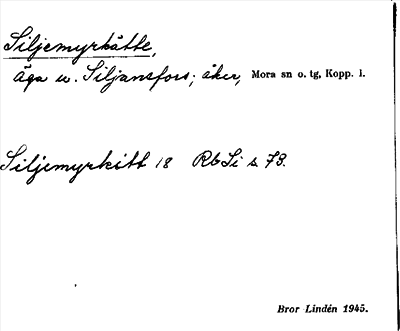 Siljemyrkåtte,
äga u. Siljansfors; åker, Mora sn o. tg, Kopp. l.
Siljemyrkitt 18 Rb Li s. 73.
Bror Lindén 1945.